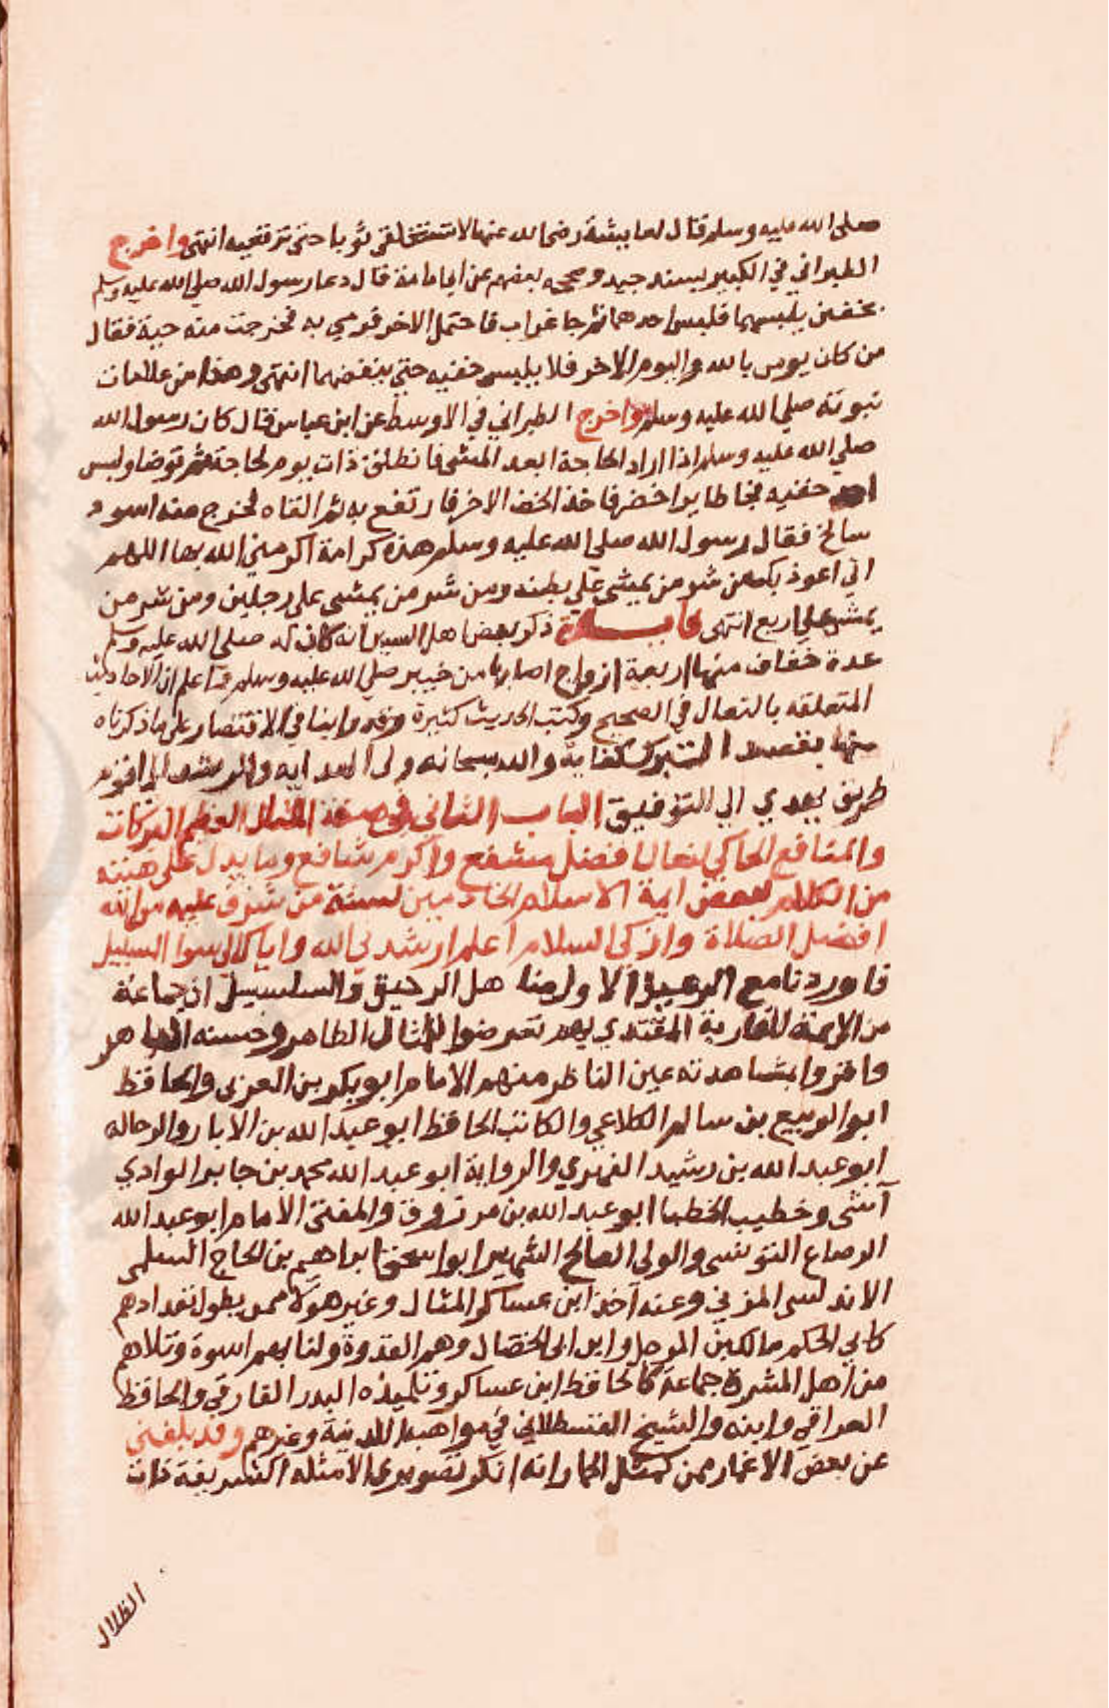 صلى الله عليه وسلم قال لعايشة رضى الله عنها لا تستخلقي ثوبا حتى ترقعيه انتهى واخرج
الطبراني في الكبير بسند جيد وصححه بعضهم عن ابا امامة قال دعا رسول الله صلى الله عليه وسلم
بخفين يلبسهما فلبس احدهما ثم جا غراب فاحتمل الاخر فرمي به فخرجت منه حية فقال
من كان يومن بالله واليوم الاخر فلا يلبس خفيه حتى ينفضهما انتهى وهذا من علامات
نبوته صلى الله عليه وسلم واخرج الطبراني في الاوسط عن ابن عباس قال كان رسول الله
صلى الله عليه وسلم اذا اراد الحاجة ابعد المشى فانطلق ذات يوم لحاجة ثم توضا ولبس
احد خفيه فجا طاير اخضر فاخذ الخف الاخر فارتفع به ثم القاه فخرج منه اسود
سالخ فقال رسول الله صلى الله عليه وسلم هذه كرامة اكرمني الله بها اللهم
اني اعوذ بك من شر من يمشى على بطنه ومن شر من يمشى على رجلين ومن شر من
يمشى على اربع انتهى فايدة ذكر بعض اهل السير انه كان له صلى الله عليه وسلم
عدة خفاف منها اربعة ازواج اصابها من خيبر صلى الله عليه وسلم اعلم ان الاحاديث
المتعلقه بالنعال في الصحيح وكتب الحديث كثيرة وفيما ذكرناه
منها بقصد التبرك كفاية والله سبحانه ولى الهدايه والمرشد الى اقوم
طريق يهدي الي التوفيق الباب الثاني في صفة المثال العظيم البركات
والمنافع الحاكي لنعال افضل مشفع واكرم شافع وما يدل على هيئته
من الكلام لبعض ايمة الاسلام الخادمين لسنة من شرف عليه من الله
افضل الصلاة وازكى السلام اعلم ارشدني الله واياك الى سوا السبيل
واوردنا مع الرعيل الاول منا هل الرحيق والسلسبيل ان جماعة
من الايمة المغاربة المقتدي بهم تعرضوا للمثال الطاهر وحسنه الباهر
واقروا بمشاهدته عين الناظر منهم الامام ابو بكر بن العربى والحافظ
ابو الربيع بن سالم الكلاعي والكاتب الحافظ ابو عبد الله بن الابار والرحاله
ابو عبد الله بن رشيد الفهري والراوية ابو عبد الله محمد بن جابر الوادي
آشى وخطيب الخطبا ابو عبد الله بن مرزوق والمفتى الامام ابو عبد الله
الرصاع التونسى والولى الصالح الشهير ابو اسحق ابراهيم بن الحاج السلمى
الاندلسى المرى وعنه آخذ ابن عساكر المثال وغير هولا ممن يطول تعدادهم
كابي الحكم مالك بن المرحل وابن ابى الخصال وهم القدوة ولنا بهم اسوة وتلاهم
من اهل المشرق جماعة كالحافظ ابن عساكر وتلميذه البدر الفارقي والحافظ
العراقي وابنه والشيخ القسطلاني في مواهبه اللدنية وغيرهم وقد بلغنى
عن بعض الاغمار ممن كمثل الحمار انه انكر تصويرى الامثله الشريفة ذات
الظلال